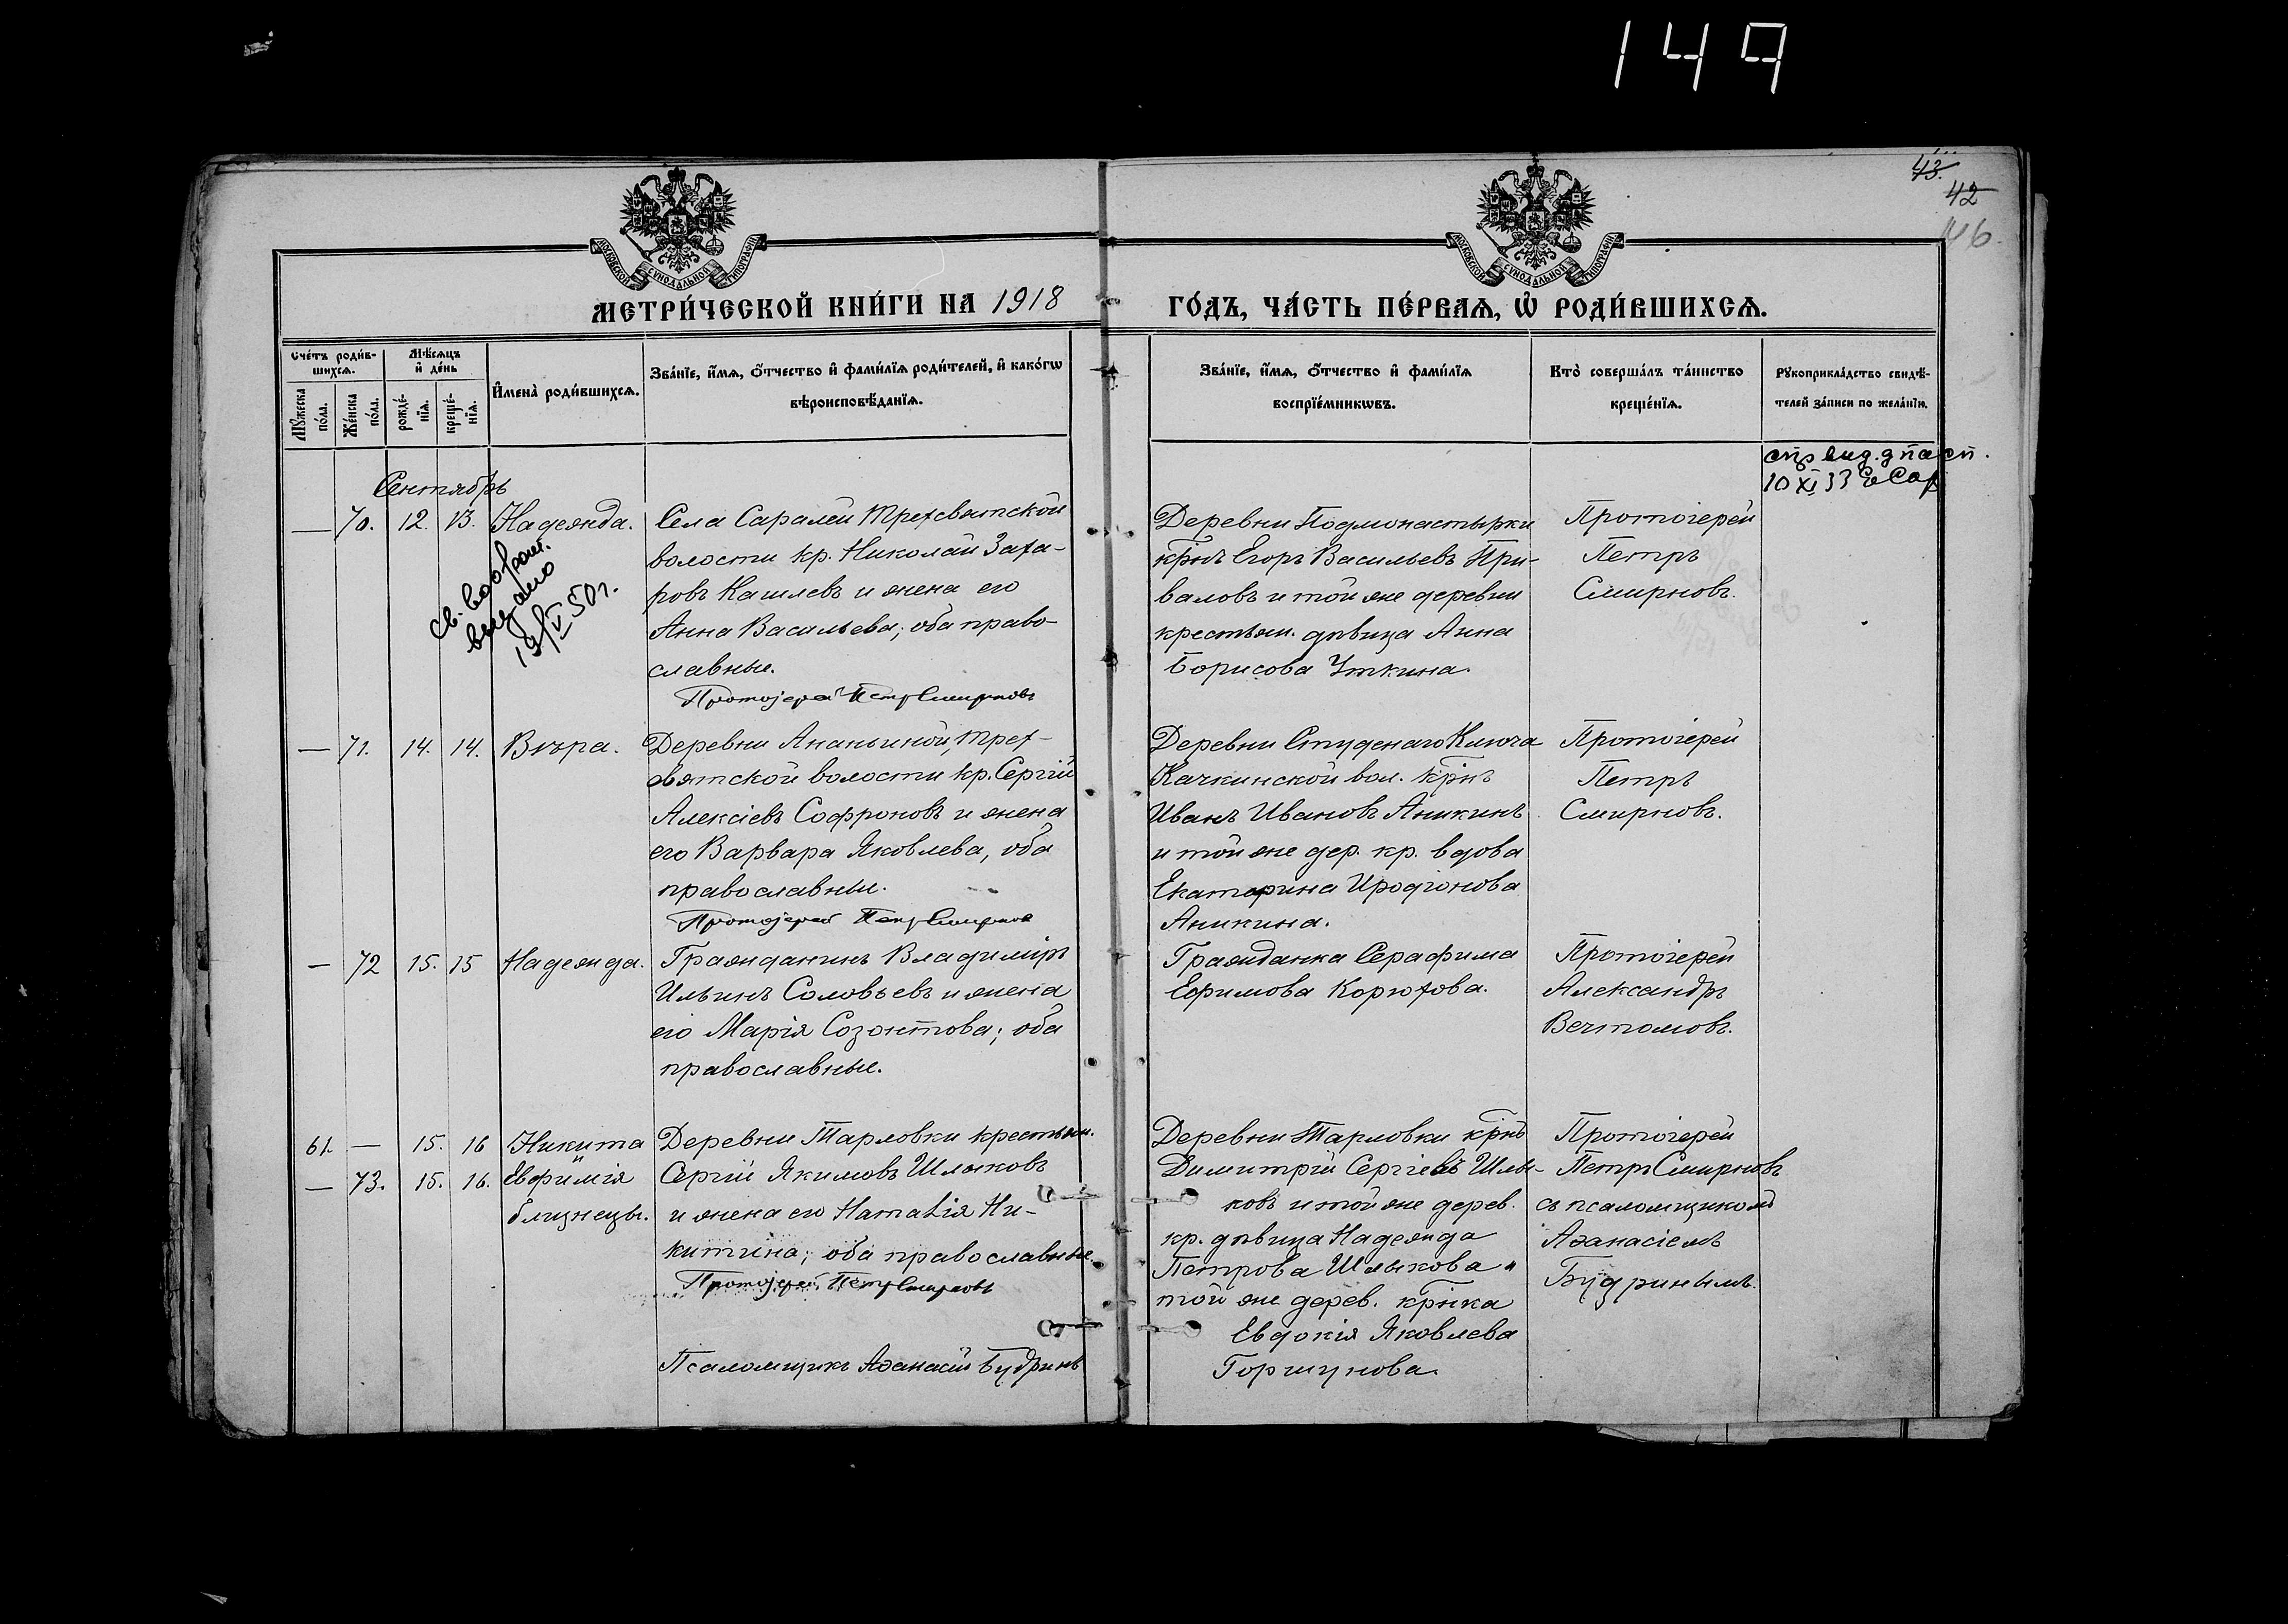 149
43.
42
146.
МОСКОВСКОЙ СѴНОДАЛЬНОЙ ТИПОГРАФІИ
МОСКОВСКОЙ СѴНОДАЛЬНОЙ ТИПОГРАФІИ
МЕТРИ́ЧЕСКОЙ КНИ́ГИ НА 1918
ГО́ДЪ, ЧА́СТЬ ПЕ́РВАѦ, Ѡ҆ РОДИ́ВШИХСѦ.
Сче́тъ роди́в-
шихсѧ.
Мѣ́сѧцъ
и҆ де́нь
Мꙋ́жеска
по́ла.
Же́нска
по́ла.
рожде́-
нїѧ.
креще́-
нїѧ.
И҆мена̀ роди́вшихсѧ.
Зва́нїе, и҆́мѧ, ѻ҆́тчество и҆ фами́лїѧ роди́телей, и҆ како́гѡ
вѣроисповѣ́данїѧ.
Зва́нїе, и҆́мѧ, ѻ҆́тчество и҆ фами́лїѧ
воспрїе́мникѡвъ.
Кто̀ соверша́лъ та́инство
креще́нїѧ.
Рꙋкоприкла́дство свидѣ́-
телей за́писи по жела́нїю.
10 XI 33
Сентябрь
— 70. 12. 13. Надежда.
Села Саралей Трехсвятской
волости кр. Николай Заха-
ровъ Кашлевъ и жена его
Анна Васильева; оба право-
славные.
Протоіерей Петръ Смирновъ
Деревни Подмонастырки
кр‐нъ Егоръ Васильевъ При-
валовъ и той же деревни
крестьян. дѣвица Анна
Борисова Уткина.
Протоіерей
Петръ
Смирновъ.
св. о рожд.
выдано
19/V 50 г.
— 71. 14. 14. Вѣра.
Деревни Ананьиной, Трех-
святской волости кр. Сергій
Алексіевъ Софроновъ и жена
его Варвара Яковлева, оба
православны.
Протоіерей Петръ Смирновъ
Деревни Студенаго Ключа
Качкинской вол. кр‐нъ
Иванъ Ивановъ Аникинъ
и той же дер. кр. вдова
Екатерина Иродіонова
Аникина.
Протоіерей
Петръ
Смирновъ.
— 72 15. 15 Надежда.
Гражданинъ Владиміръ
Ильинъ Соловьевъ и жена
его Марія Созонтова; оба
православные.
Гражданка Серафима
Ефимова Корюхова.
Протоіерей
Александръ
Вечтомовъ.
61. — 15. 16 Никита
и
— 73. 15. 16. Евфимія
близнецы.
Деревни Тарловки крестьян.
Сергій Якимовъ Шлыковъ
и жена его Наталія Ни-
китина; оба православные.
Протоіерей Петръ Смирновъ
Псаломщикъ Аѳанасій Будринъ
Деревни Тарловки кр‐нъ
Димитрій Сергіевъ Шлы-
ковъ и той же дерев.
кр. дѣвица Надежда
Петрова Шлыкова и
той же дерев. кр‐нка
Евдокія Яковлева
Горшунова.
Протоіерей
Петръ Смирновъ
съ псаломщикомъ
Аѳанасіемъ
Будринымъ.